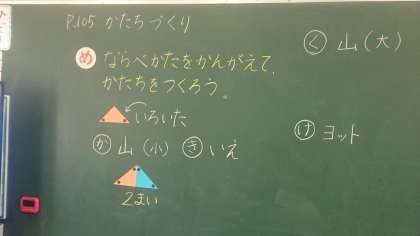 P.105 かたちづくり
め ならべかたをかんがえて、
かたちをつくろう。
いろいた
か 山(小) き いえ
2まい
く 山(大)
け ヨット